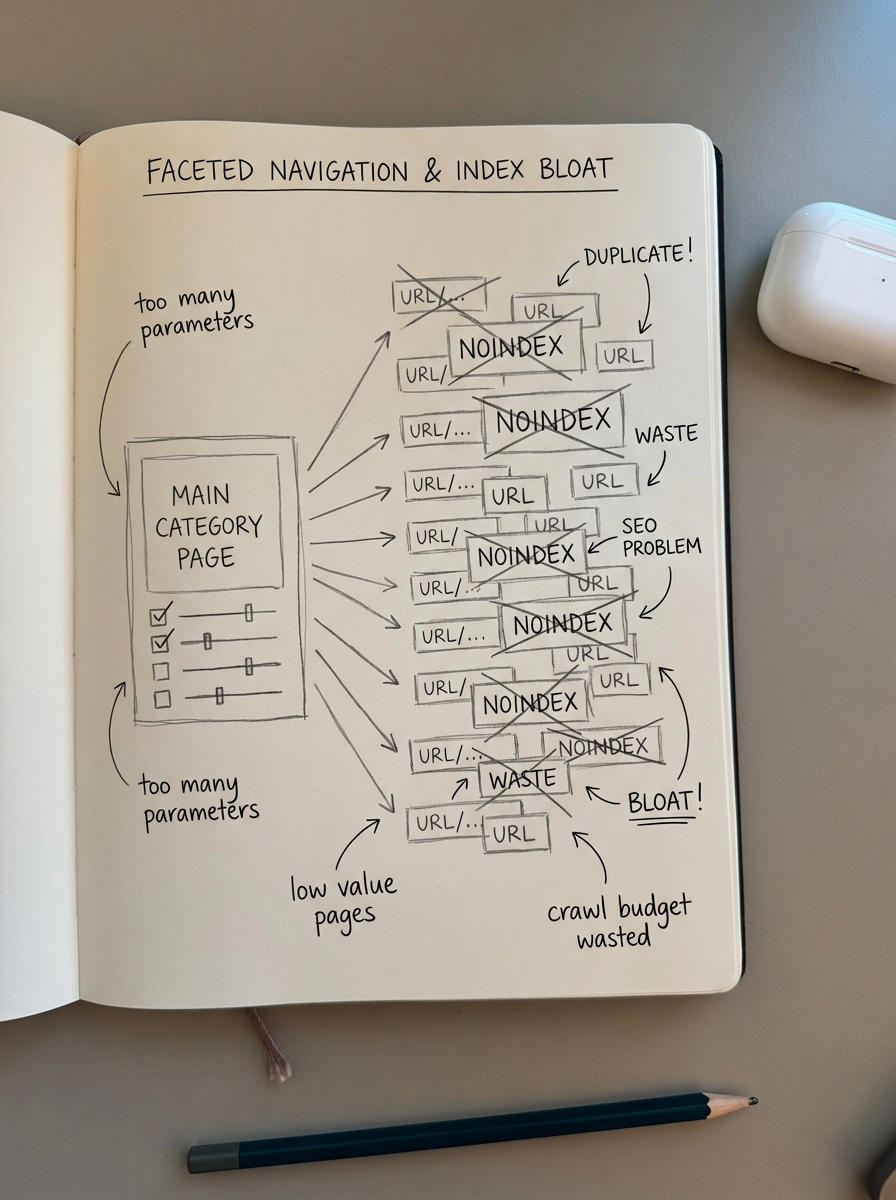 FACETED NAVIGATION & INDEX BLOAT
too many
parameters
MAIN
CATEGORY
PAGE
too many
parameters
DUPLICATE!
URL/...
URL
NOINDEX
URL
URL/
URL/...
NOINDEX
WASTE
URL/...
URL
URL
URL
SEO
PROBLEM
URL/
NOINDEX
URL/...
URL
URL/...
NOINDEX
URL
URL/
NOINDEX
URL
URL/...
NOINDEX
WASTE
BLOAT!
URL/...
URL
low value
pages
crawl budget
wasted